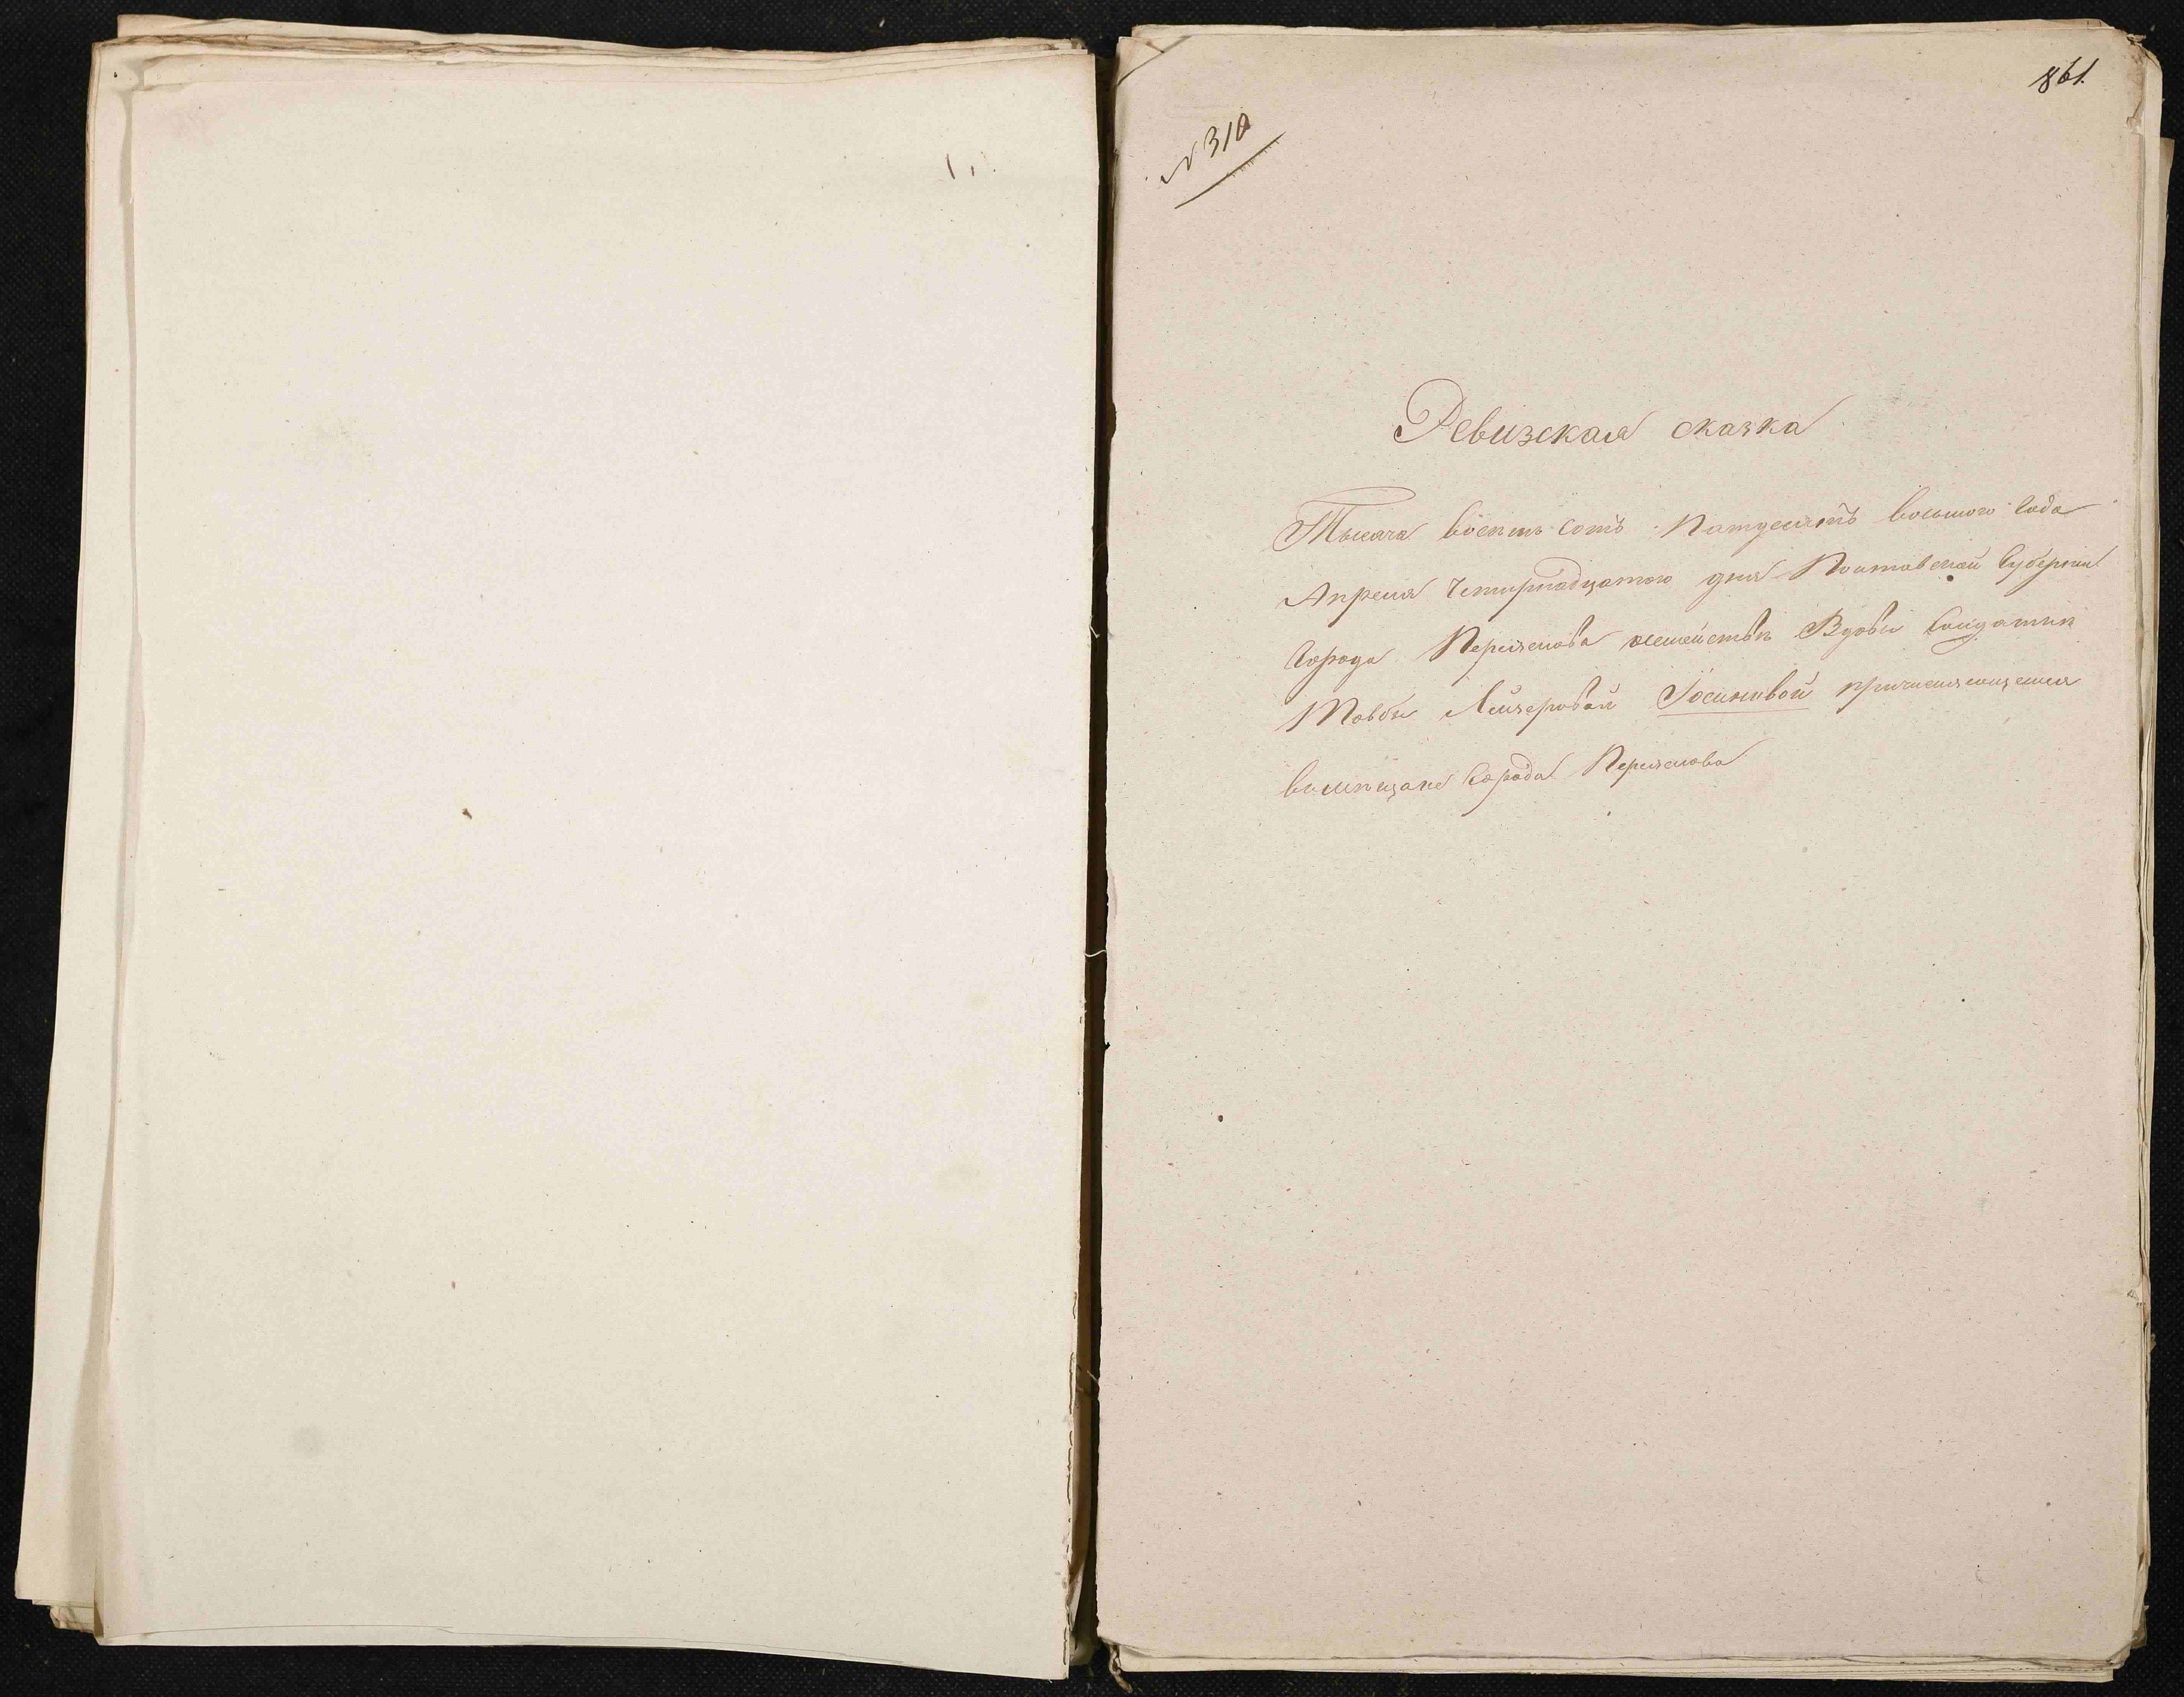 861.
№ 310
Ревизская сказка
Тысяча восемь сотъ Пятдесятъ восьмого Года
Апреля Четирнадцатого дня Полтавской Губернии
Города Переяслова семействѣ Вдовы Солдатки
Товбы Лейзеровой Іосиновой причисляющемся
вмѣщане Города Переяслова